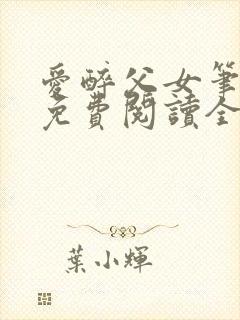 愛醉父女筆
免費閱讀全
葉小輝